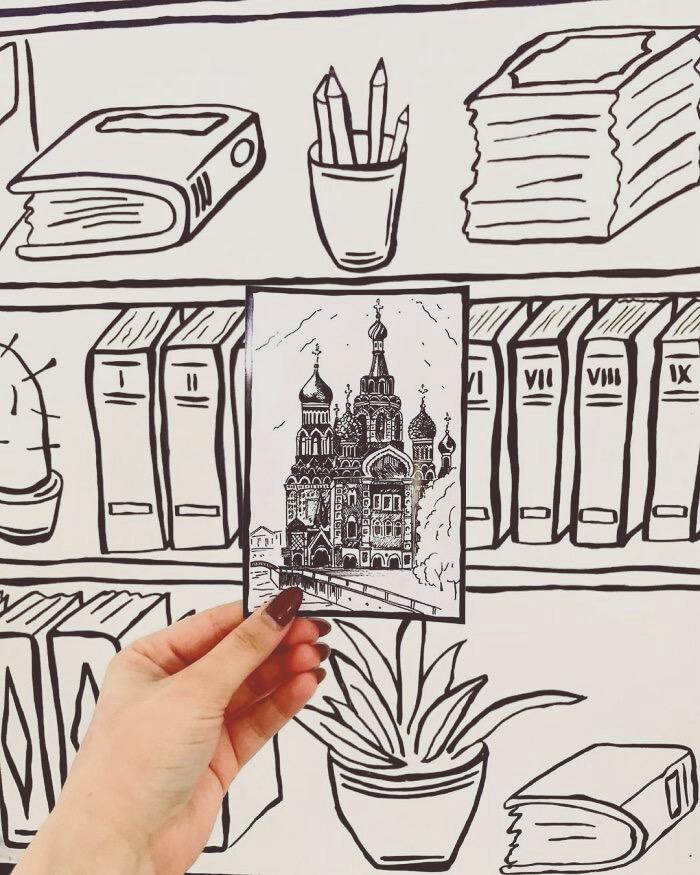 I
II
VI
VII
VIII
IX